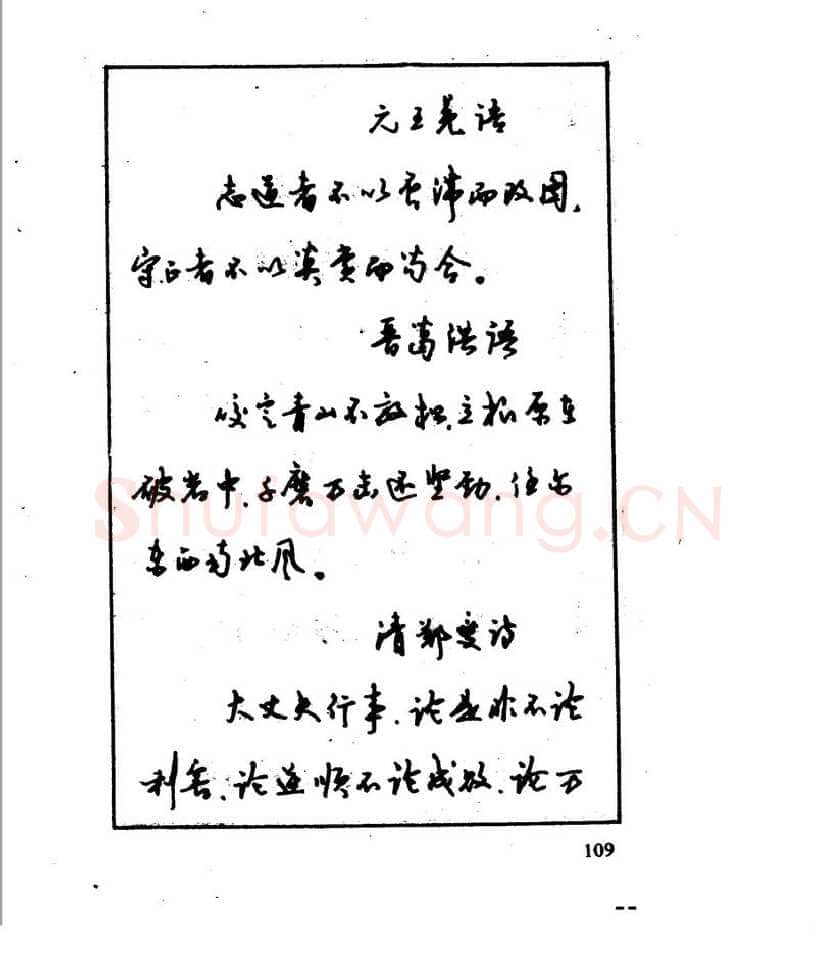 元王冕语
志道者不以否滞而改图，
守正者不以莫赏而苟合。
晋葛洪语
咬定青山不放松，立根原在
破岩中，千磨万击还坚劲，任尔
东西南北风。
清郑燮诗
大丈夫行事，论是非不论
利害，论逆顺不论成败，论万
109
Shufawang.CN